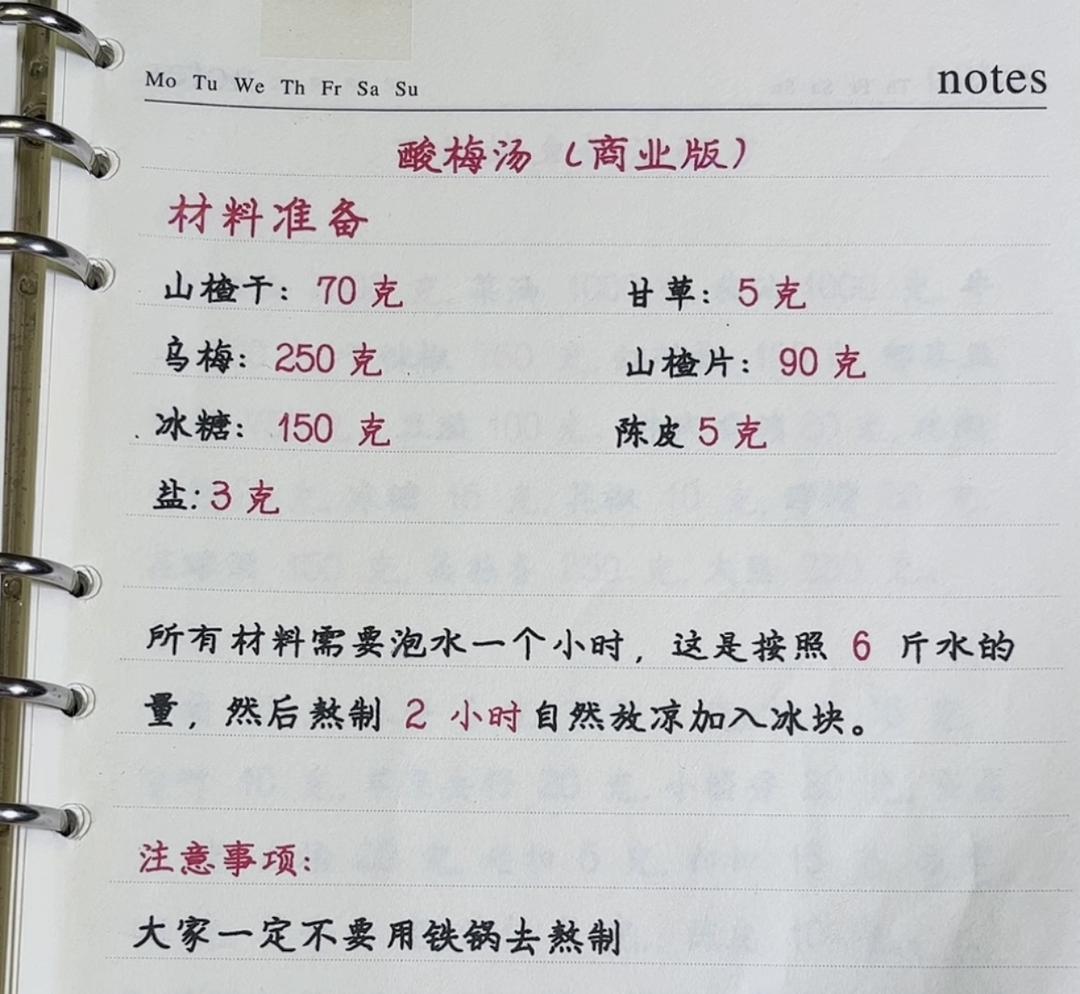 Mo Tu We Th Fr Sa Su notes
酸梅汤（商业版）
材料准备
山楂干：70 克 甘草：5 克
乌梅：250 克 山楂片：90 克
冰糖：150 克 陈皮 5 克
盐：3 克
所有材料需要泡水一个小时，这是按照 6 斤水的
量，然后熬制 2 小时自然放凉加入冰块。
注意事项：
大家一定不要用铁锅去熬制